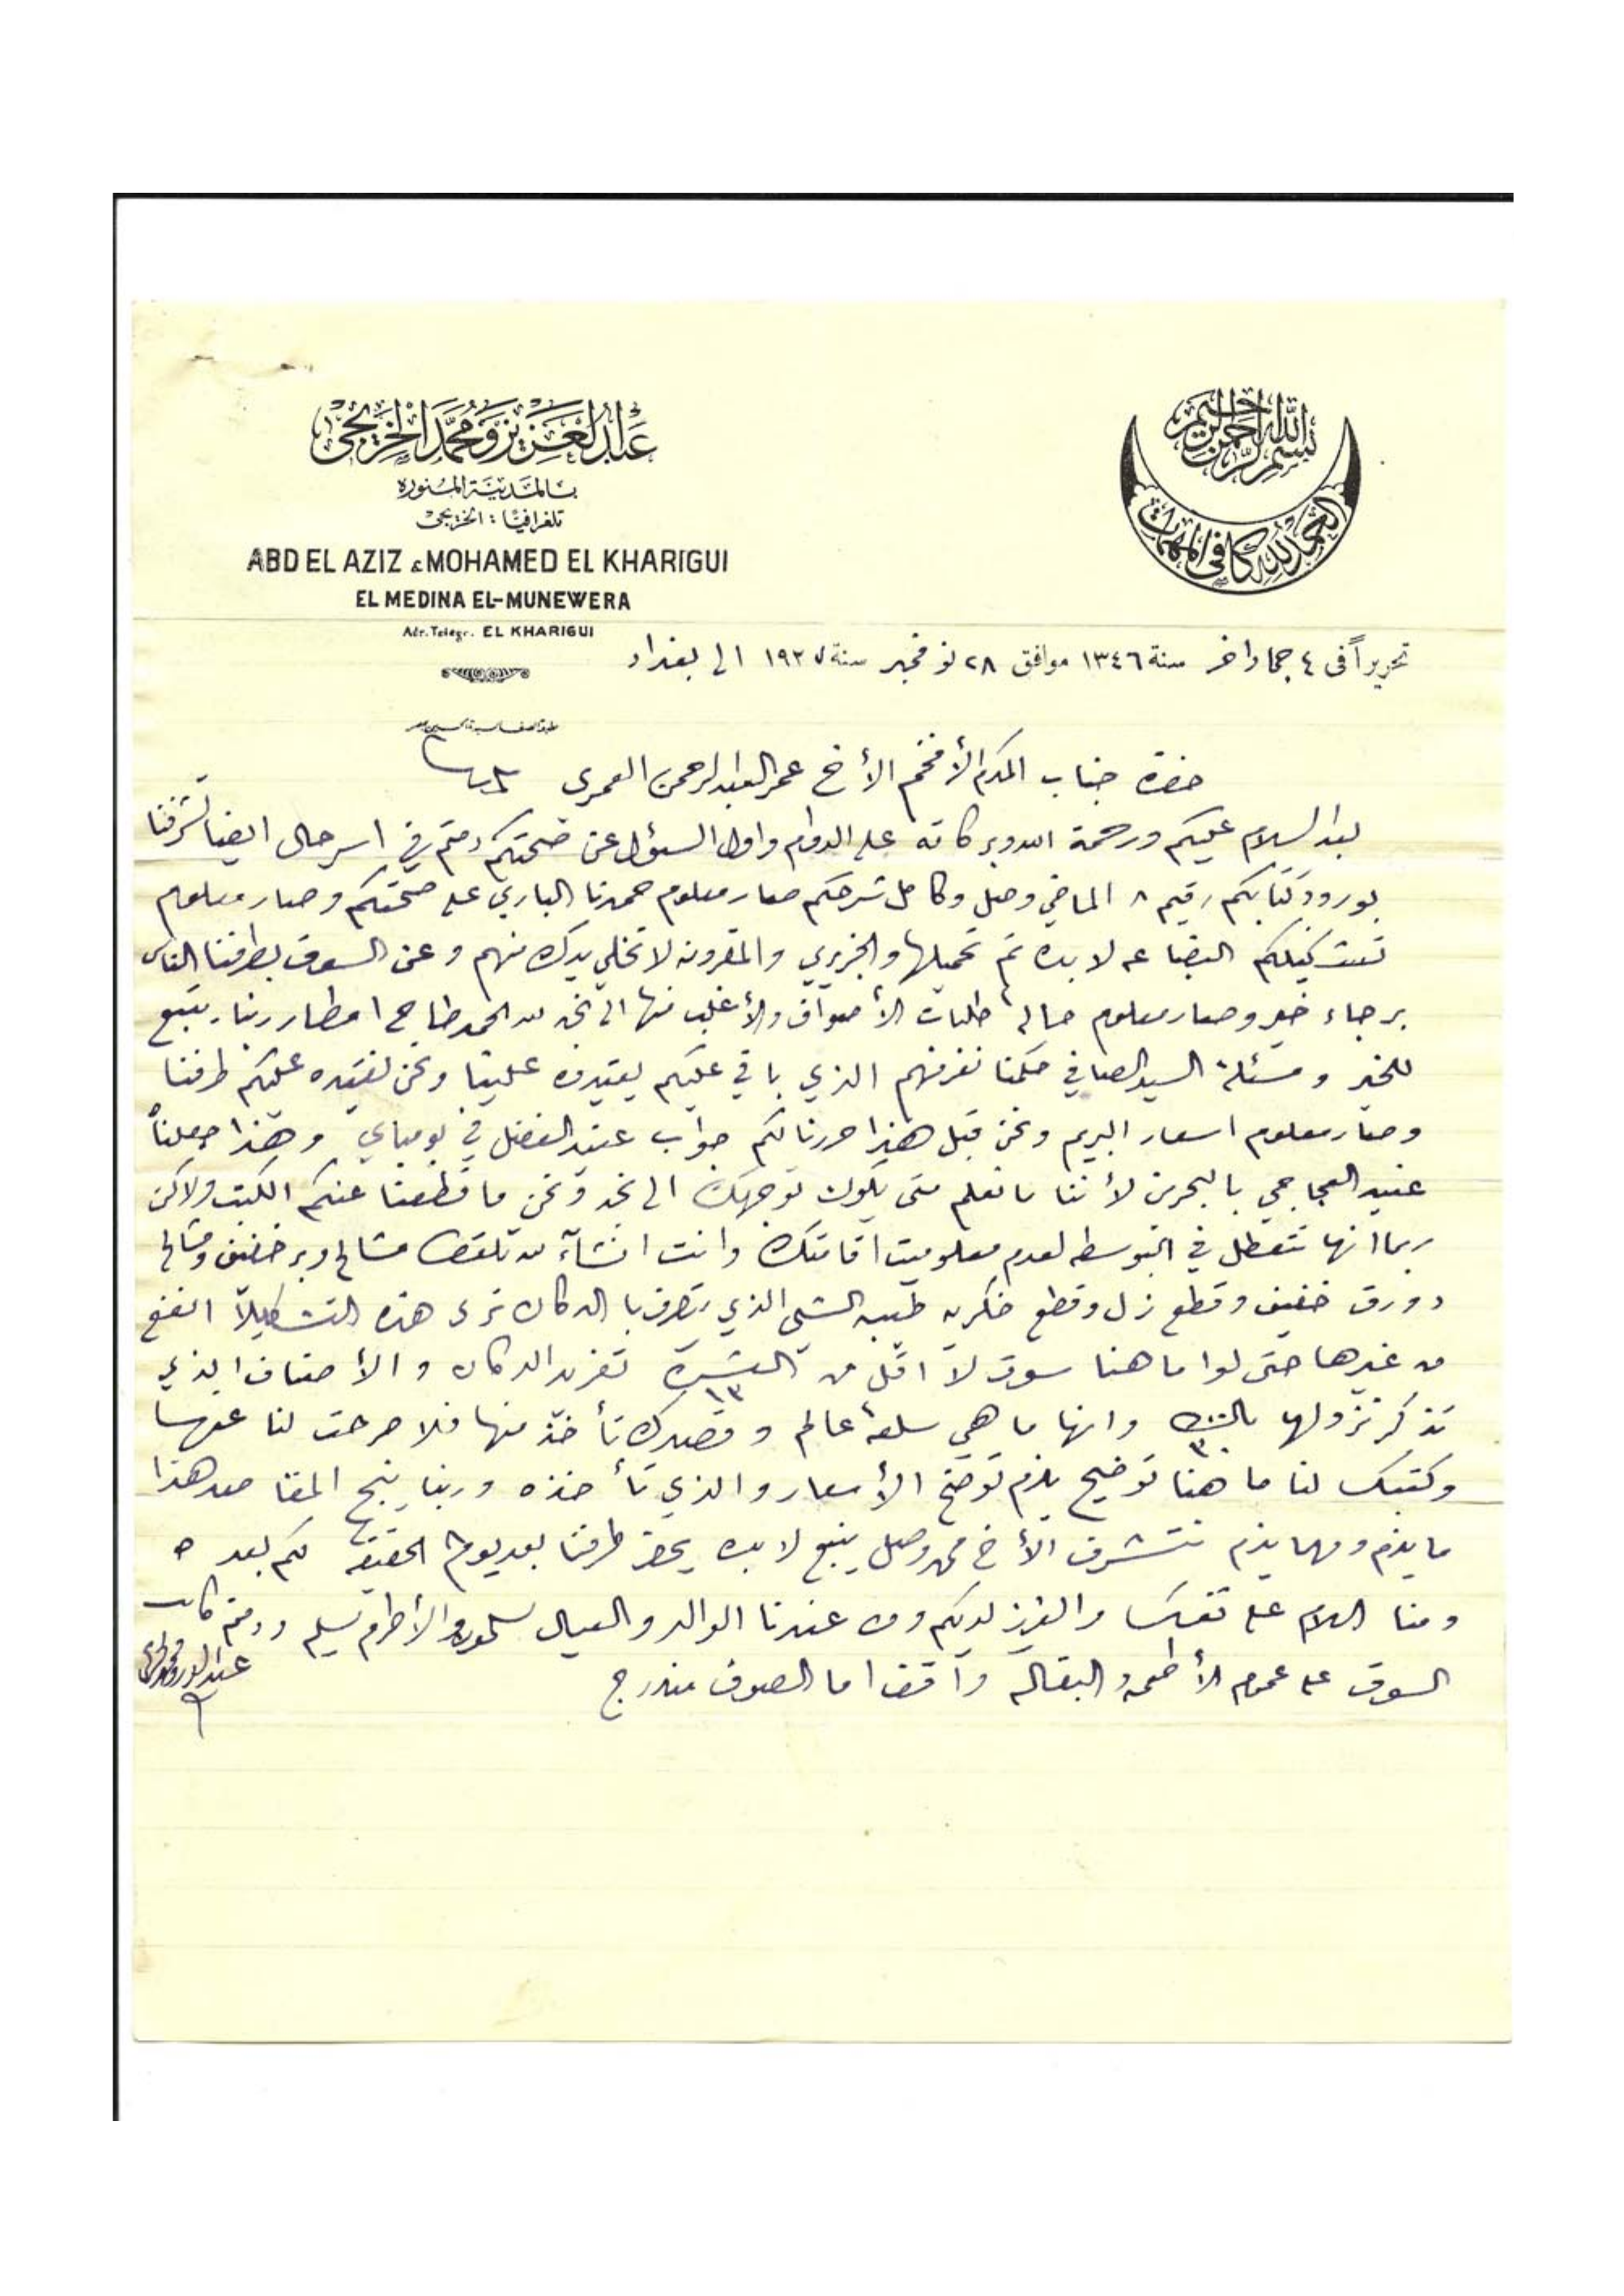 بسم الله الرحمن الرحيم
الحمد لله كافي المهمات
عبد العزيز ومحمد الخريجي
بالمدينة المنوره
تلغرافيا: الخريجي
ABD EL AZIZ & MOHAMED EL KHARIGUI
EL MEDINA EL-MUNEWERA
Adr. Telegr. EL KHARIGUI
تحريراً في ٤ جماد اخر سنة ١٣٤٦ موافق ٢٨ نوفمبر سنة ١٩٢٧ الى بغداد
حضرة جناب المكرم الأفخم الأخ عمر العبد الرحمن العمري
بعد السلام عليكم ورحمة الله وبركاته على الدوام واول السؤل عن صحتكم دمتم في اسر حال ايضا تشرفنا
بورود كتابكم رقيم ٨ الماضي وصل وكامل شرحكم صار معلوم حمدنا الباري على صحتكم وصار معلوم
البضاعه لا بده تم تحميلها والجزيري والمقرونه لا تخلي يدك منهم وعن السوق بطرفنا الناس
برجاء خير وصار معلوم حالة طلبات الأصواف والأغلب منها الى نجد لله الحمد طايح امطار ربنا يتبع
للخير ومسئلة السيد الصافي حكمنا نفرفهم الذي باقي عليكم يقيدوه علينا ونحن نقيده عليكم طرفنا
وصار معلوم اسعار البريم ونحن قبل هذا حررنا لكم جواب عنيد الفضل في بومباي وهذا جعلناه
عنيد العجاجي بالبحرين لأننا ما نعلم متى يكون توجهك الى نجد ونحن ما قطعنا عنكم الكتب ولاكن
ربما انها تتعطل في البوسطه لعدم معلوميت اقامتك وانت انشآء لله تلقط مشالح وبر خفيف ومشالح
دورق خفيف وقطع زل وقطع طيبه الشي الذي يتصرف بالدكان ترى هذه التشكيلا انفع
من غيرها حتى لوا ما هنا سوق لا اقل من العشرة ١٣ تفريد الدكان والأصناف الذي
تذكر نزولها ٣٠ وانها ما هي سلعة عالم وقصدك تأخذ منها فلا صرحت لنا عنها
وكتبك لنا ما هنا توضيح يلزم توضح الأسعار والذي تأخذه وربنا ينجح المقاصد هذا
ما يلزم ومهما يلزم نتشرف الأخ محمد وصل ينبع لا بده يحضر طرفنا بعد يوم
ومنا السلام على نفسك والعزيز لديكم ومن عندنا الوالد والعيال يسلمون والأخ اكرم يسلم ودمتم
السوق على عموم الأطعمه والبقاله واقف اما الصوف مندرج